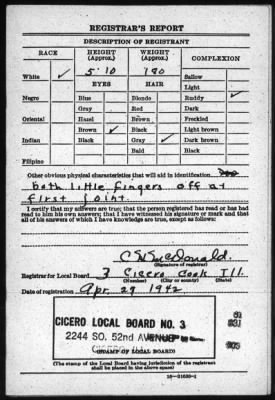 REGISTRAR'S REPORT
DESCRIPTION OF REGISTRANT
RACE HEIGHT (Approx.) WEIGHT (Approx.) COMPLEXION
White ✓ 5' 10 190 Sallow
Light
EYES HAIR
Negro Blue Blonde Ruddy ✓
Gray Red Dark
Oriental Hazel Brown Freckled
Brown ✓ Black Light brown
Indian Black Gray ✓ Dark brown
Bald Black
Filipino
Other obvious physical characteristics that will aid in identification
both little fingers off at
first joint.
I certify that my answers are true; that the person registered has read or has had
read to him his own answers; that I have witnessed his signature or mark and that
all of his answers of which I have knowledge are true, except as follows:
McDonald.
(Signature of registrar)
Registrar for Local Board 3 Cicero Cook Ill.
(Number) (City or county) (State)
Date of registration Apr. 27 1942
CICERO LOCAL BOARD NO. 3
2244 SO. 52nd AVENUE
CICERO ILL
(STAMP OF LOCAL BOARD)
(The stamp of the Local Board having jurisdiction of the registrant
shall be placed in the above space)